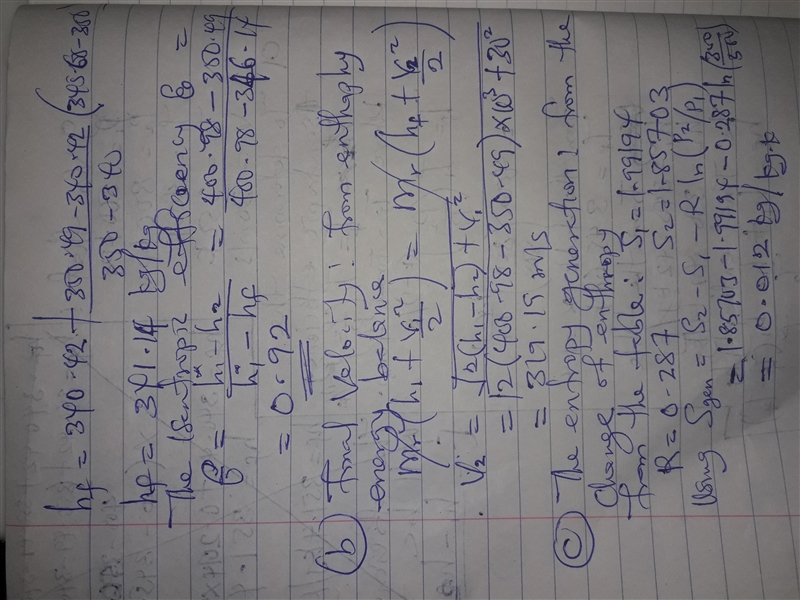 hf = 340.42 + 350.49 - 340.42 (345.65 - 350)
350 - 340
hf = 341.14 kJ/kg
The isentropic efficiency is =
= h1 - h2 = 400.98 - 350.49
h1 - hf 400.98 - 346.14
= 0.92
(b) final velocity: from enthalphy
energy balance
(h1 + V1²/2) = (hf + V2²/2)
V2 = √2(h1 - h2) + V1²
= √2(400.98 - 350.49) x10³ + 30²
= 319.15 m/s
(c) The entropy generation; from the
change of enthropy
from the table: S1 = 1.99194
R = 0.287 S2 = 1.85703
Using Sgen = S2 - S1 - R ln(P2/P1)
= 1.85703 - 1.99194 - 0.287 ln
= 0.012 kJ/kg.k